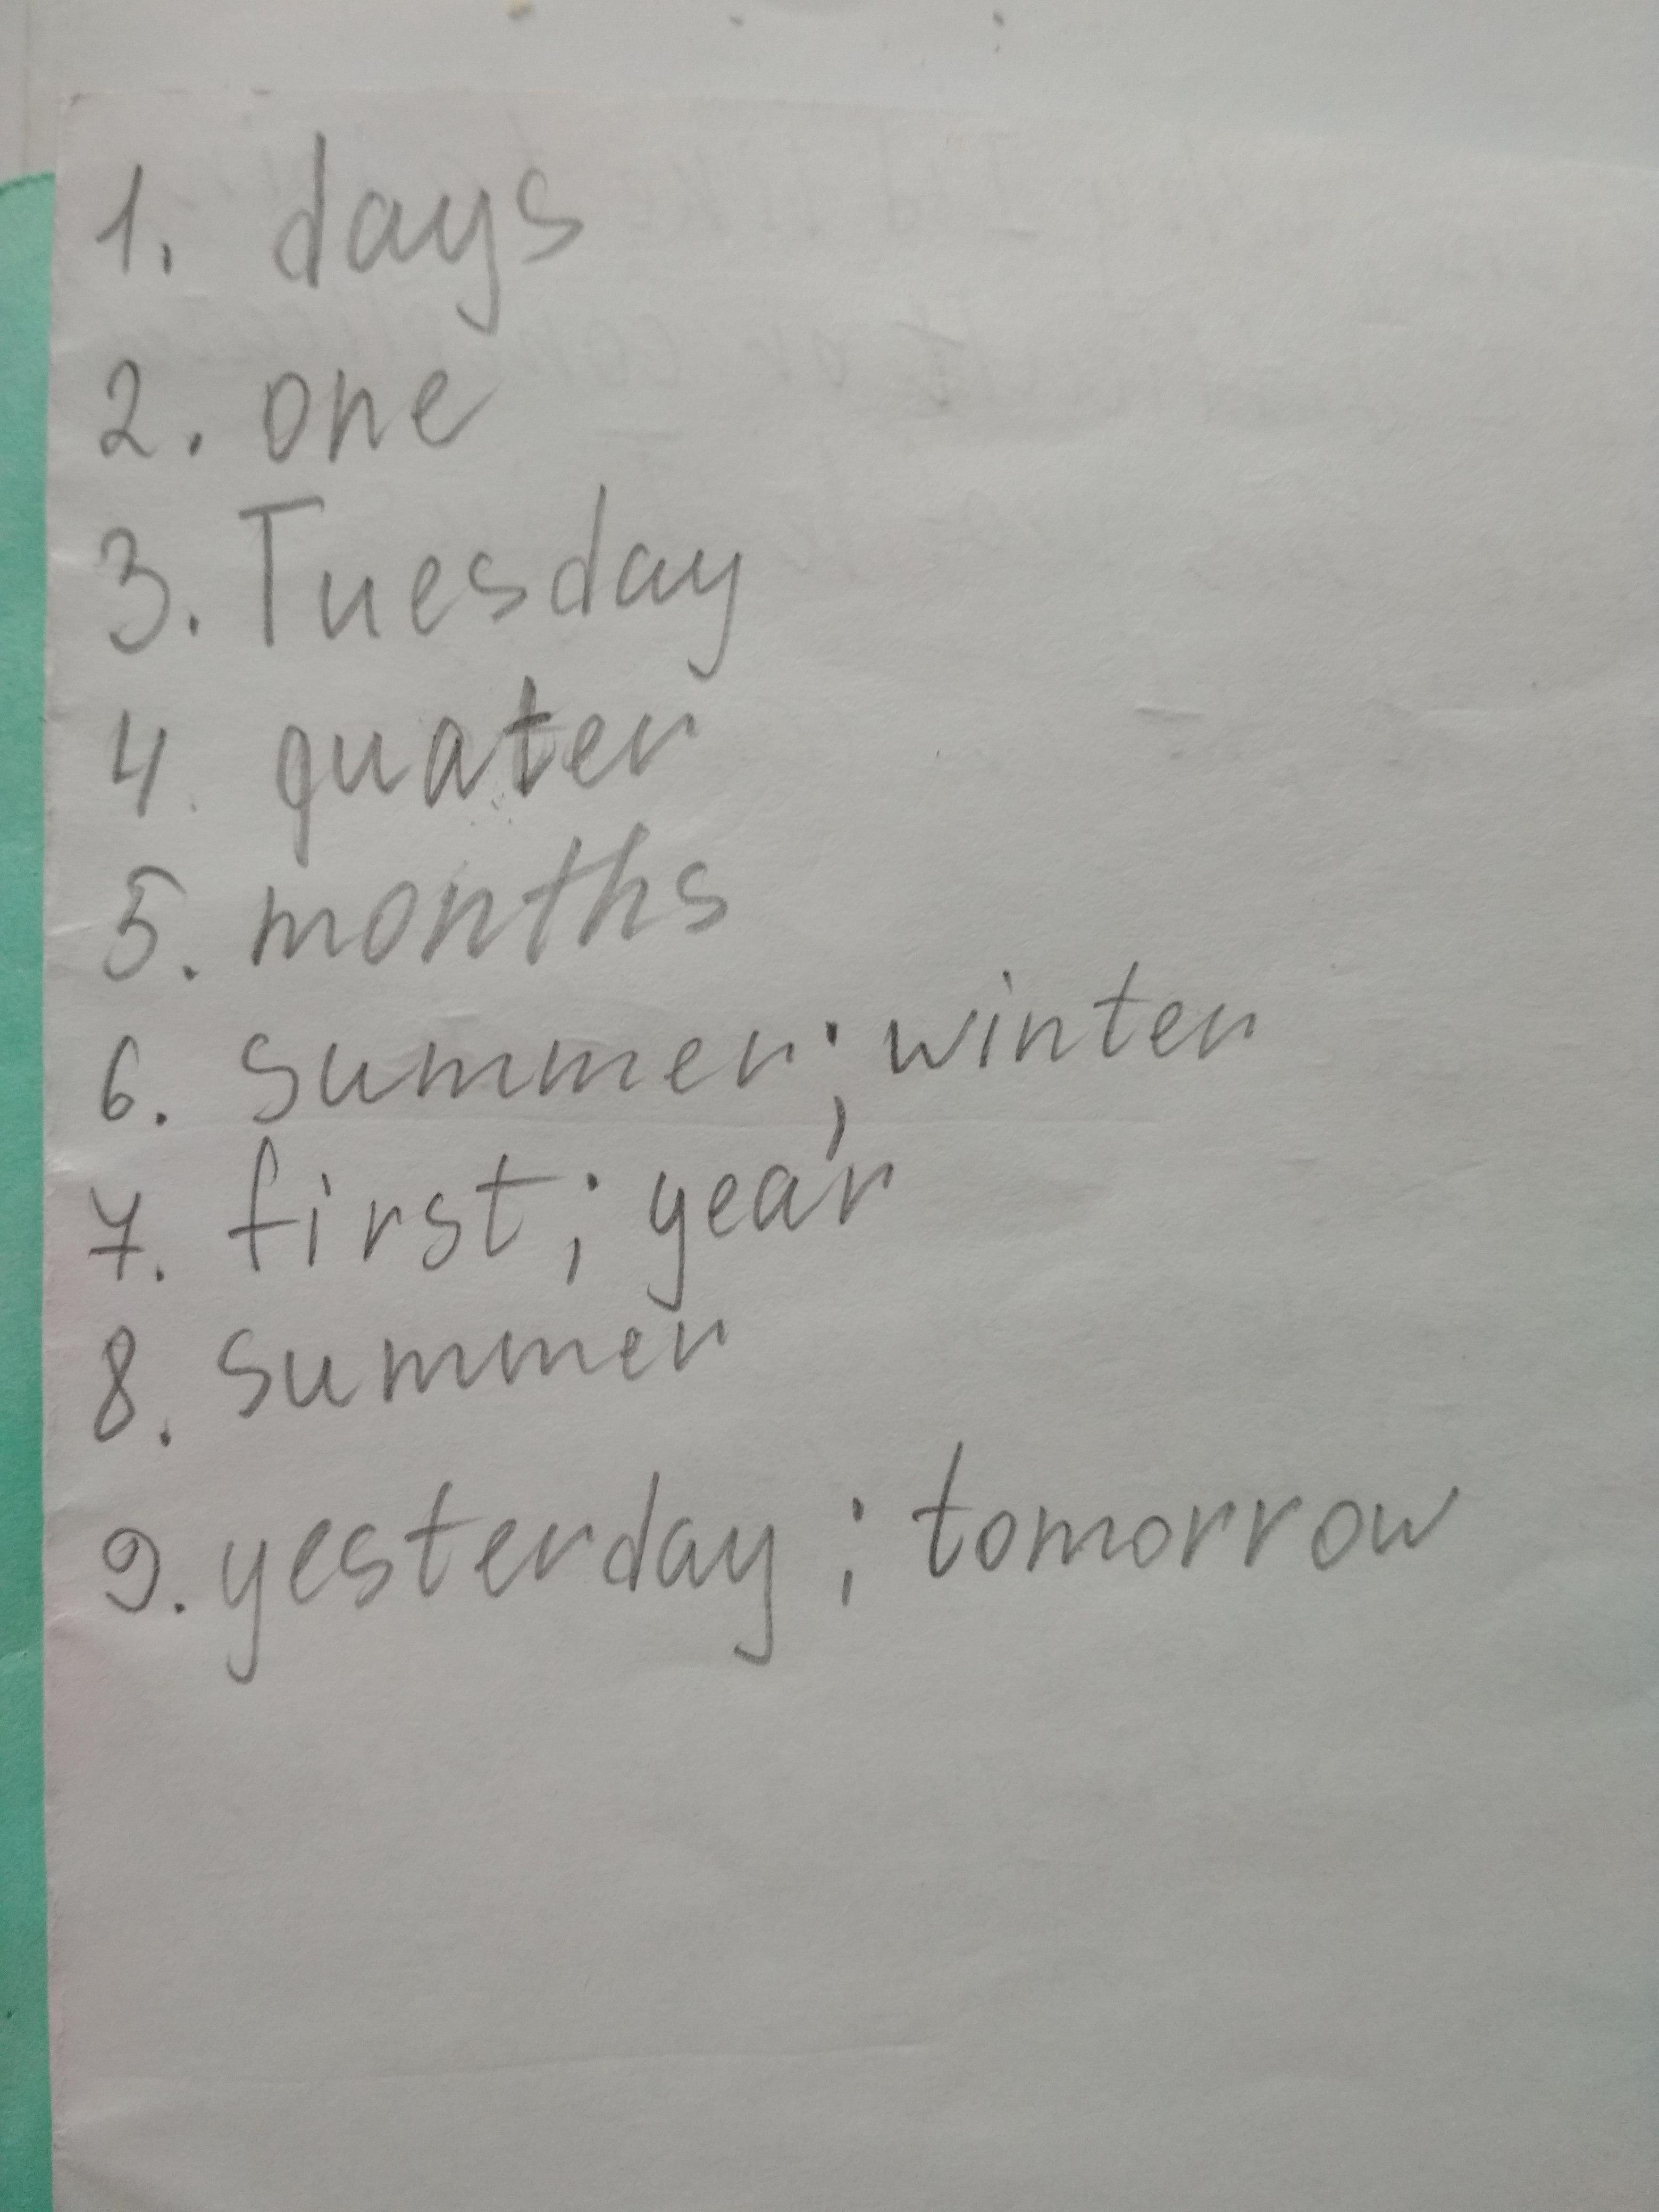 1. days
2. one
3. Tuesday
4. quater
5. months
6. summer; winter
7. first; year
8. summer
9. yesterday; tomorrow